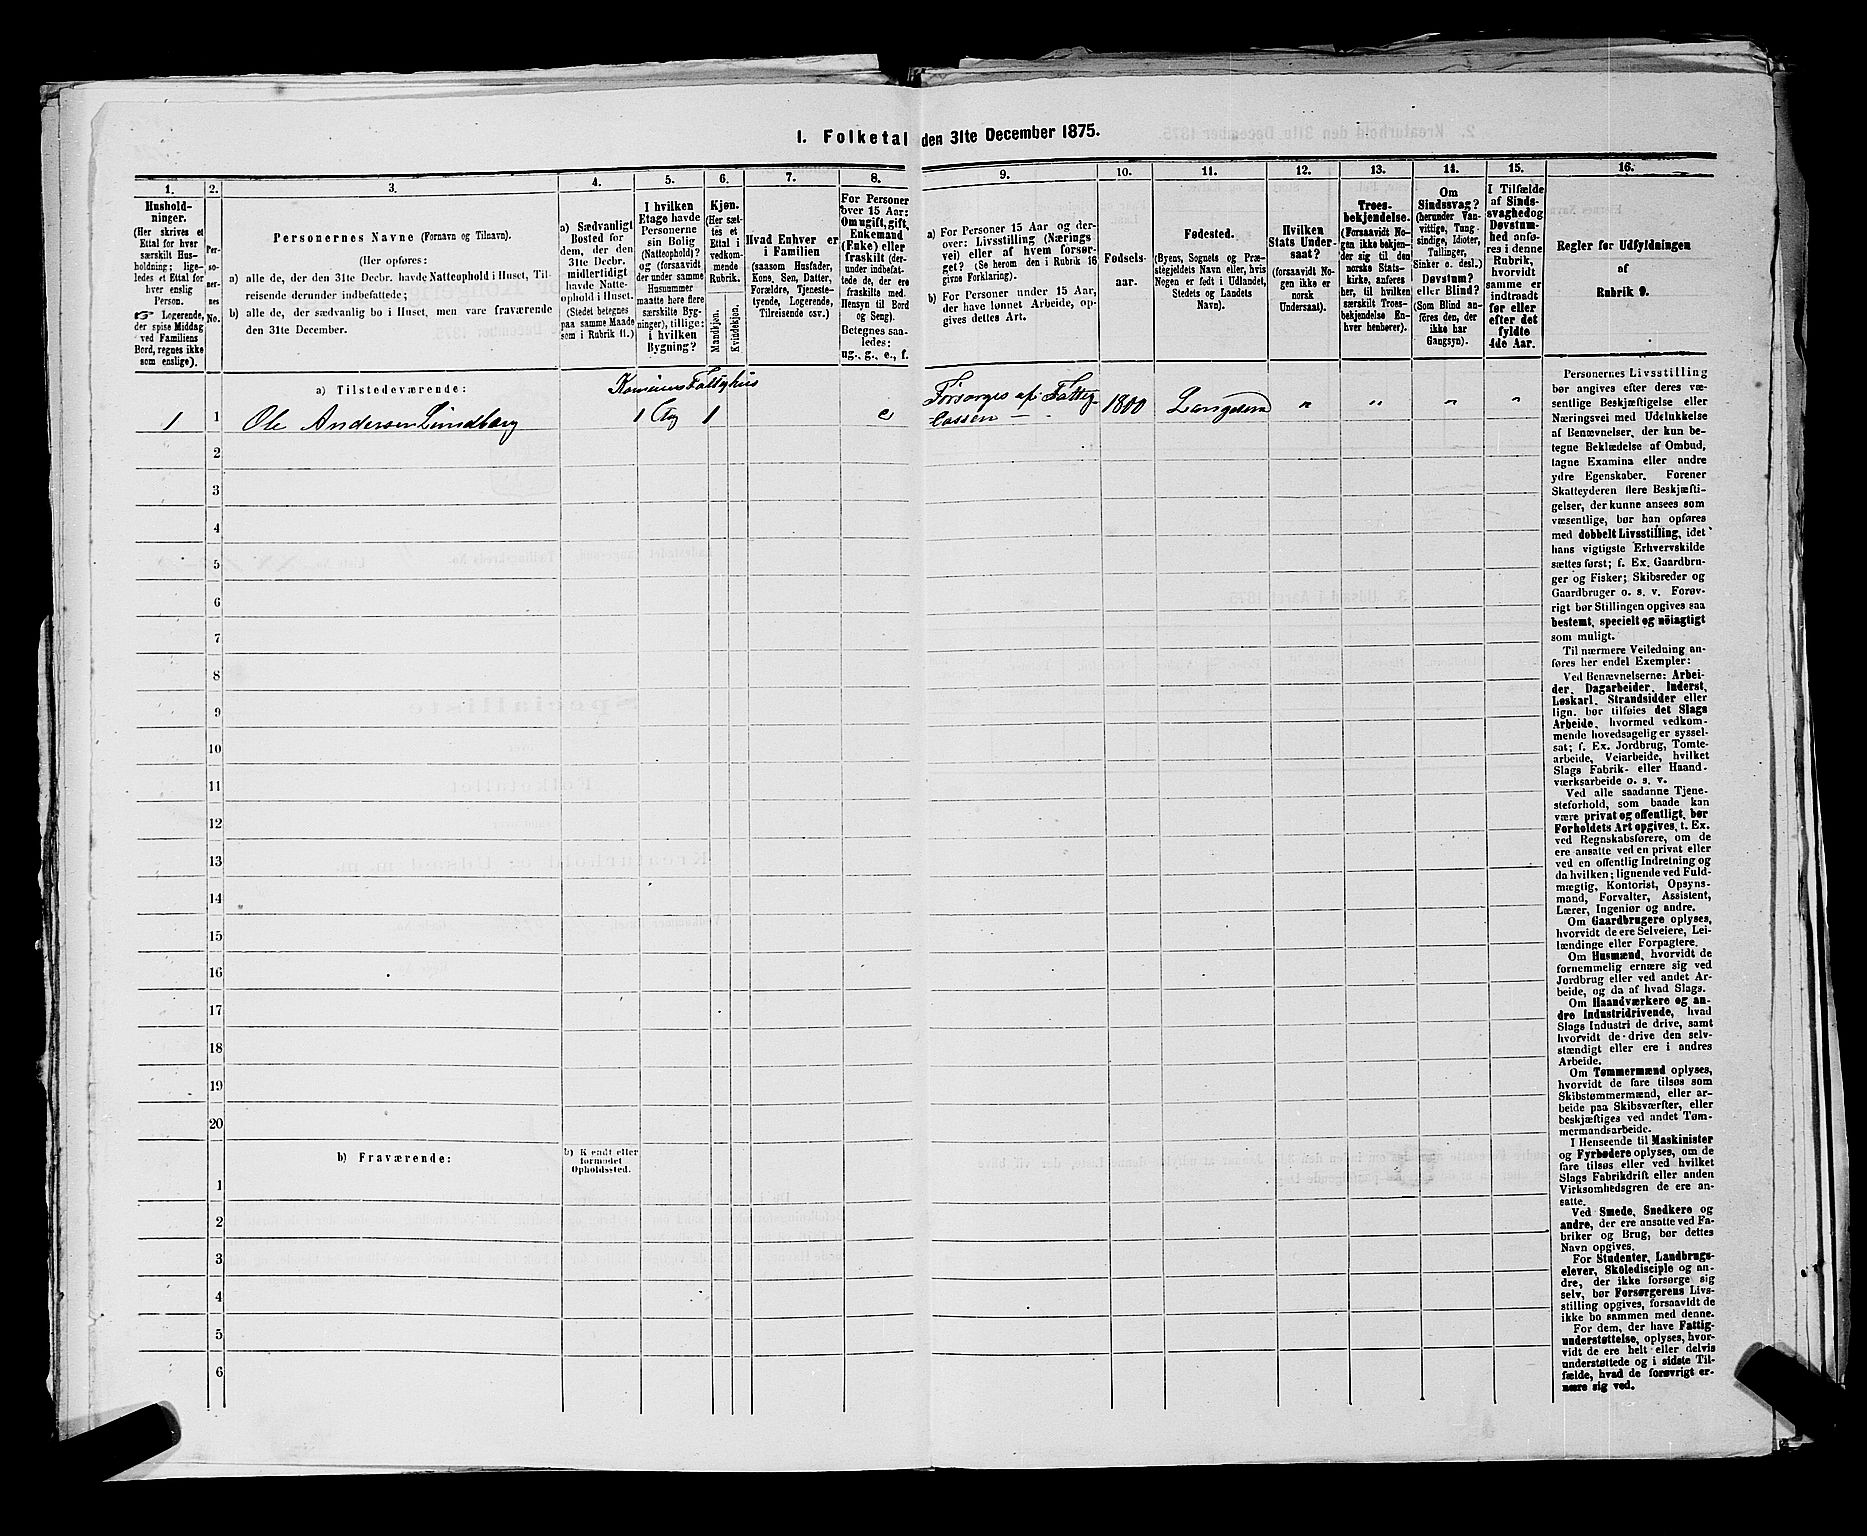 I. Folketal den 31te December 1875.
1. 2. 3. 4. 5. 6. 7. 8. 9. 10. 11. 12. 13. 14. 15. 16.
Hushold-
ninger.
(Her skrives et
Ettal for hver
særskilt Hus-
holdning; lige-
ledes et Ettal for
hver enslig
Person.
☞ Logerende,
der spise Middag
ved Familiens
Bord, regnes ikke
som enslige).
Per-
so-
ner-
nes
No.
Personernes Navne (Fornavn og Tilnavn).
(Her opføres:
a) alle de, der den 31te Decbr. havde Natteophold i Huset, Til-
reisende derunder indbefattede;
b) alle de, der sædvanlig bo i Huset, men vare fraværende
den 31te December.
a) Sædvanligt
Bosted for
dem, der den
31te Decbr.
midlertidigt
havde Natte-
ophold i Huset.
(Stedet betegnes
paa samme Maade
som i Rubrik 11.)
I hvilken
Etage havde
Personerne
sin Bolig
(Natteophold)?
og (forsaavidt
der under samme
Husnummer
maatte høre flere
særskilte Byg-
ninger), tillige:
i hvilken
Bygning?
Kjøn.
(Her sæt-
tes et
Ettal i
vedkom-
mende
Rubrik.
Mandkjøn.
Kvindekjøn.
Hvad Enhver er
i Familien
(saasom Husfader,
Kone, Søn, Datter,
Forældre, Tjeneste-
tyende, Logerende,
Tilreisende osv.)
For Personer
over 15 Aar:
Om ugift, gift,
Enkemand
(Enke) eller
fraskilt (der-
under indbefat-
tede de, der ere
fraskilte med.
Hensyn til Bord
og Seng).
Betegnes saa-
ledes:
ug., g., e., f.
a) For Personer 15 Aar og der-
over: Livsstilling (Nærings
vei) eller af hvem forsør-
get? (Se herom den i Rubrik 16
givne Forklaring).
b) For Personer under 15 Aar,
der have lønnet Arbeide, op-
gives dettes Art.
Fødsels-
aar.
Fødested.
(Byens, Sognets og Præ-
stegjeldets Navn eller, hvis
Nogen er født i Udlandet,
Stedets og Landets
Navn).
Hvilken
Stats Under-
saat?
(forsaavidt No-
gen ikke er
norsk
Undersaat).
Troes-
bekjendelse.
(Forsaavidt No-
gen ikke bekjen-
der sig til den
norske Stats-
kirke, anføres
her, til hvilken
særskilt Troes-
bekjendelse En-
hver henhører).
Om
Sindssvag?
(herunder Van-
vittige, Tung-
sindige, Idioter,
Tullinger,
Sinker o. desl.)
Døvstum?
eller Blind?
(Som Blind an-
føres den, der
ikke har
Gangsyn).
I Tilfælde
af Sinds-
svaghed og
Døvstum-
hed anfø-
res i denne
Rubrik,
hvorvidt
samme er
indtraadt
før eller
efter det
fyldte
4de Aar.
Regler for Udfyldningen
af
Rubrik 9.
a) Tilstedeværende:
1 1 Ole Andersen Lundborg 1 Etg 1 e Forsørges af Fattig- 1800 Langesun " " " "
cassen
2
3
4
5
6
7
8
9
10
11
12
13
14
15
16
17
18
19
20
b) Fraværende:
b) Kjendt eller
formodet
Opholdssted.
1
2
3
4
5
6
Personernes Livsstilling
bør angives efter deres væ-
sentlige Beskjæftigelse eller
Næringsvei med Udelukkelse
af Benævnelser, der kun be-
tegne Beklædelse af Ombud,
tagne Examina eller andre
ydre Egenskaber. Forener
Skatteyderen flere Beskjæfti-
gelser, der kunne ansees som
væsentlige, bør han opføres
med dobbelt Livsstilling, idet
hans vigtigste Erhvervskilde
sættes først; f. Ex. Gaardbru-
ger og Fisker; Skibsreder og
Gaardbruger o. s. v. Forøv-
rigt bør Stillingen opgives saa
bestemt, specielt og nöiagtigt
som muligt.
Til nærmere Veiledning an-
føres her endel Exempler:
Ved Benævnelserne: Arbei-
der, Dagarbeider, Inderst,
Løskarl, Strandsidder eller
lign. bør tilføies det Slags
Arbeide, hvormed vedkom-
mende hovedsagelig er syssel-
sat; f. Ex. Jordbrug, Tomte-
arbeide, Veiarbeide, hvilket
Slags Fabrik- eller Haand-
værksarbeide o. s. v.
Ved alle saadanne Tjene-
steforhold, som baade kan
være privat og offentligt, bør
Forholdets Art opgives, t. Ex.
ved Regnskabsførere, om de
ere ansatte ved en privat eller
ved en offentlig Indretning og
da hvilken; lignende ved Fuld-
mægtig, Kontorist, Opsyns-
mand, Forvalter, Assistent,
Lærer, Ingeniør og andre.
Om Gaardbrugere oplyses,
hvorvidt de ere Selveiere, Lei-
lændinge eller Forpagtere.
Om Husmænd, hvorvidt de
fornemmelig ernære sig ved
Jordbrug eller ved andet Ar-
beide, og da af hvad Slags.
Om Haandværkere og an-
dre Industridrivende, hvad
Slags Industri de drive, samt
hvorvidt de drive den selv-
stændigt eller ere i andres
Arbeide.
Om Tømmermænd oplyses,
hvorvidt de fare tilsøs som
Skibstømmermænd, eller ar-
beide paa Skibsværfter, eller
beskjæftiges ved andet Tøm-
mermandsarbeide.
I Henseende til Maskinister
og Fyrbødere oplyses, om de
fare tilsøs eller ved hvilket
Slags Fabrikdrift eller anden
Virksomhedsgren de ere an-
satte.
Ved Smede, Snedkere og
andre, der ere ansatte ved Fa-
briker og Brug, bør dettes
Navn opgives.
For Studenter, Landbrugs-
elever, Skoledisciple og an-
dre, der ikke forsørge sig
selv, bør Forsørgerens Livs-
stilling opgives, forsaavidt de
ikke bo sammen med denne.
For dem, der have Fattig-
understøttelse, oplyses, hvor-
vidt de ere helt eller delvis
understøttede og i sidste Til-
fælde, hvad de forøvrigt er-
nære sig ved.